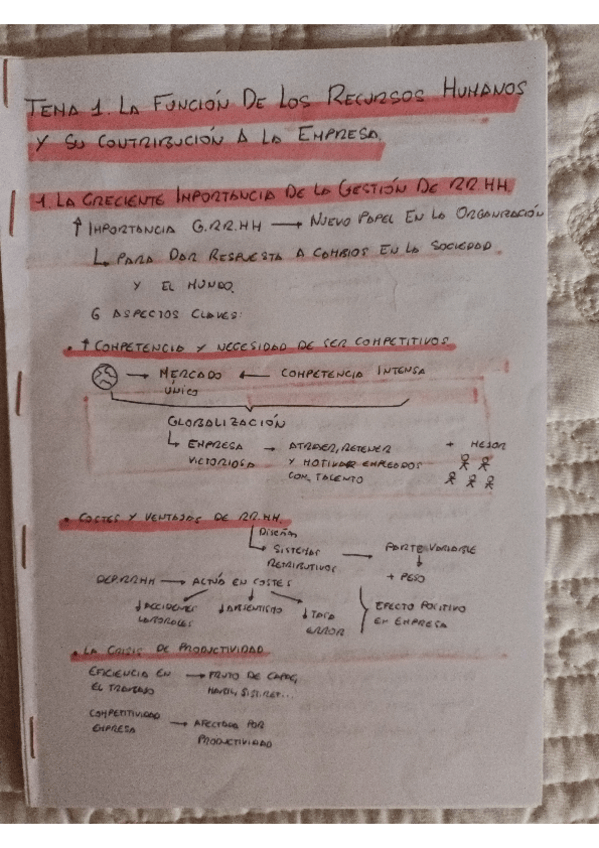 TEMA 1. LA FUNCIÓN DE LOS RECURSOS HUMANOS
Y SU CONTRIBUCIÓN A LA EMPRESA.
1. LA CRECIENTE IMPORTANCIA DE LA GESTIÓN DE RR.HH.
↑ IMPORTANCIA G.RR.HH → NUEVO PAPEL EN LA ORGANIZACIÓN
↳ PARA DAR RESPUESTA A CAMBIOS EN LA SOCIEDAD
Y EL MUNDO.
6 ASPECTOS CLAVES:
• ↑ COMPETENCIA Y NECESIDAD DE SER COMPETITIVOS
→ MERCADO ← COMPETENCIA INTENSA
ÚNICO
GLOBALIZACIÓN
↳ EMPRESA → ATRAER, RETENER + MEJOR
VICTORIOSA Y MOTIVAR EMPLEADOS
CON TALENTO
• COSTES Y VENTAJAS DE RR.HH.
DISEÑAR
↳ SISTEMAS → PARTE VARIABLE
RETRIBUTIVOS ↓
DEP.RR.HH → ACTÚA EN COSTES + PESO
↓ ACCIDENTES ↓ ABSENTISMO ↓ TASA EFECTO POSITIVO
LABORALES ERROR EN EMPRESA
• LA CRISIS DE PRODUCTIVIDAD
EFICIENCIA EN → FRUTO DE CAPAC,
EL TRABAJO SIST.RET...
COMPETITIVIDAD → AFECTADA POR
EMPRESA PRODUCTIVIDAD